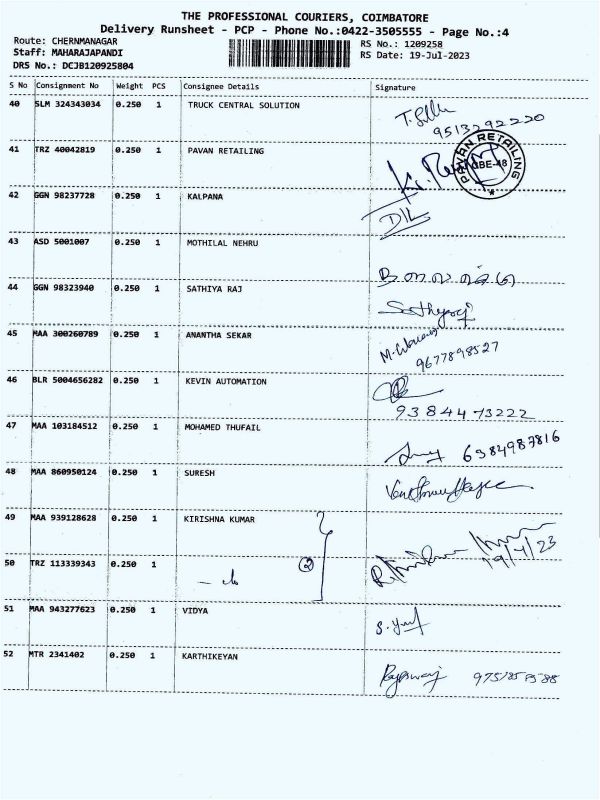 THE PROFESSIONAL COURIERS, COIMBATORE
Delivery Runsheet - PCP - Phone No.:0422-3505555 - Page No.:4
Route: CHERNMANAGAR
Staff: MAHARAJAPANDI
DRS No.: DCJB120925804
RS No.: 1209258
RS Date: 19-Jul-2023
S No Consignment No Weight PCS Consignee Details Signature
40 SLM 324343034 0.250 1 TRUCK CENTRAL SOLUTION
9513292220
41 TRZ 40042819 0.250 1 PAVAN RETAILING
PAVAN RETAILING
42 GGN 98237728 0.250 1 KALPANA
43 ASD 5001007 0.250 1 MOTHILAL NEHRU
44 GGN 98323940 0.250 1 SATHIYA RAJ
Sathyaraj
45 MAA 300260789 0.250 1 ANANTHA SEKAR
9677898527
46 BLR 5004656282 0.250 1 KEVIN AUTOMATION
9384473222
47 MAA 103184512 0.250 1 MOHAMED THUFAIL
6384987816
48 MAA 860950124 0.250 1 SURESH
49 MAA 939128628 0.250 1 KIRISHNA KUMAR
50 TRZ 113339343 0.250 1
2
19/7/23
51 MAA 943277623 0.250 1 VIDYA
52 MTR 2341402 0.250 1 KARTHIKEYAN